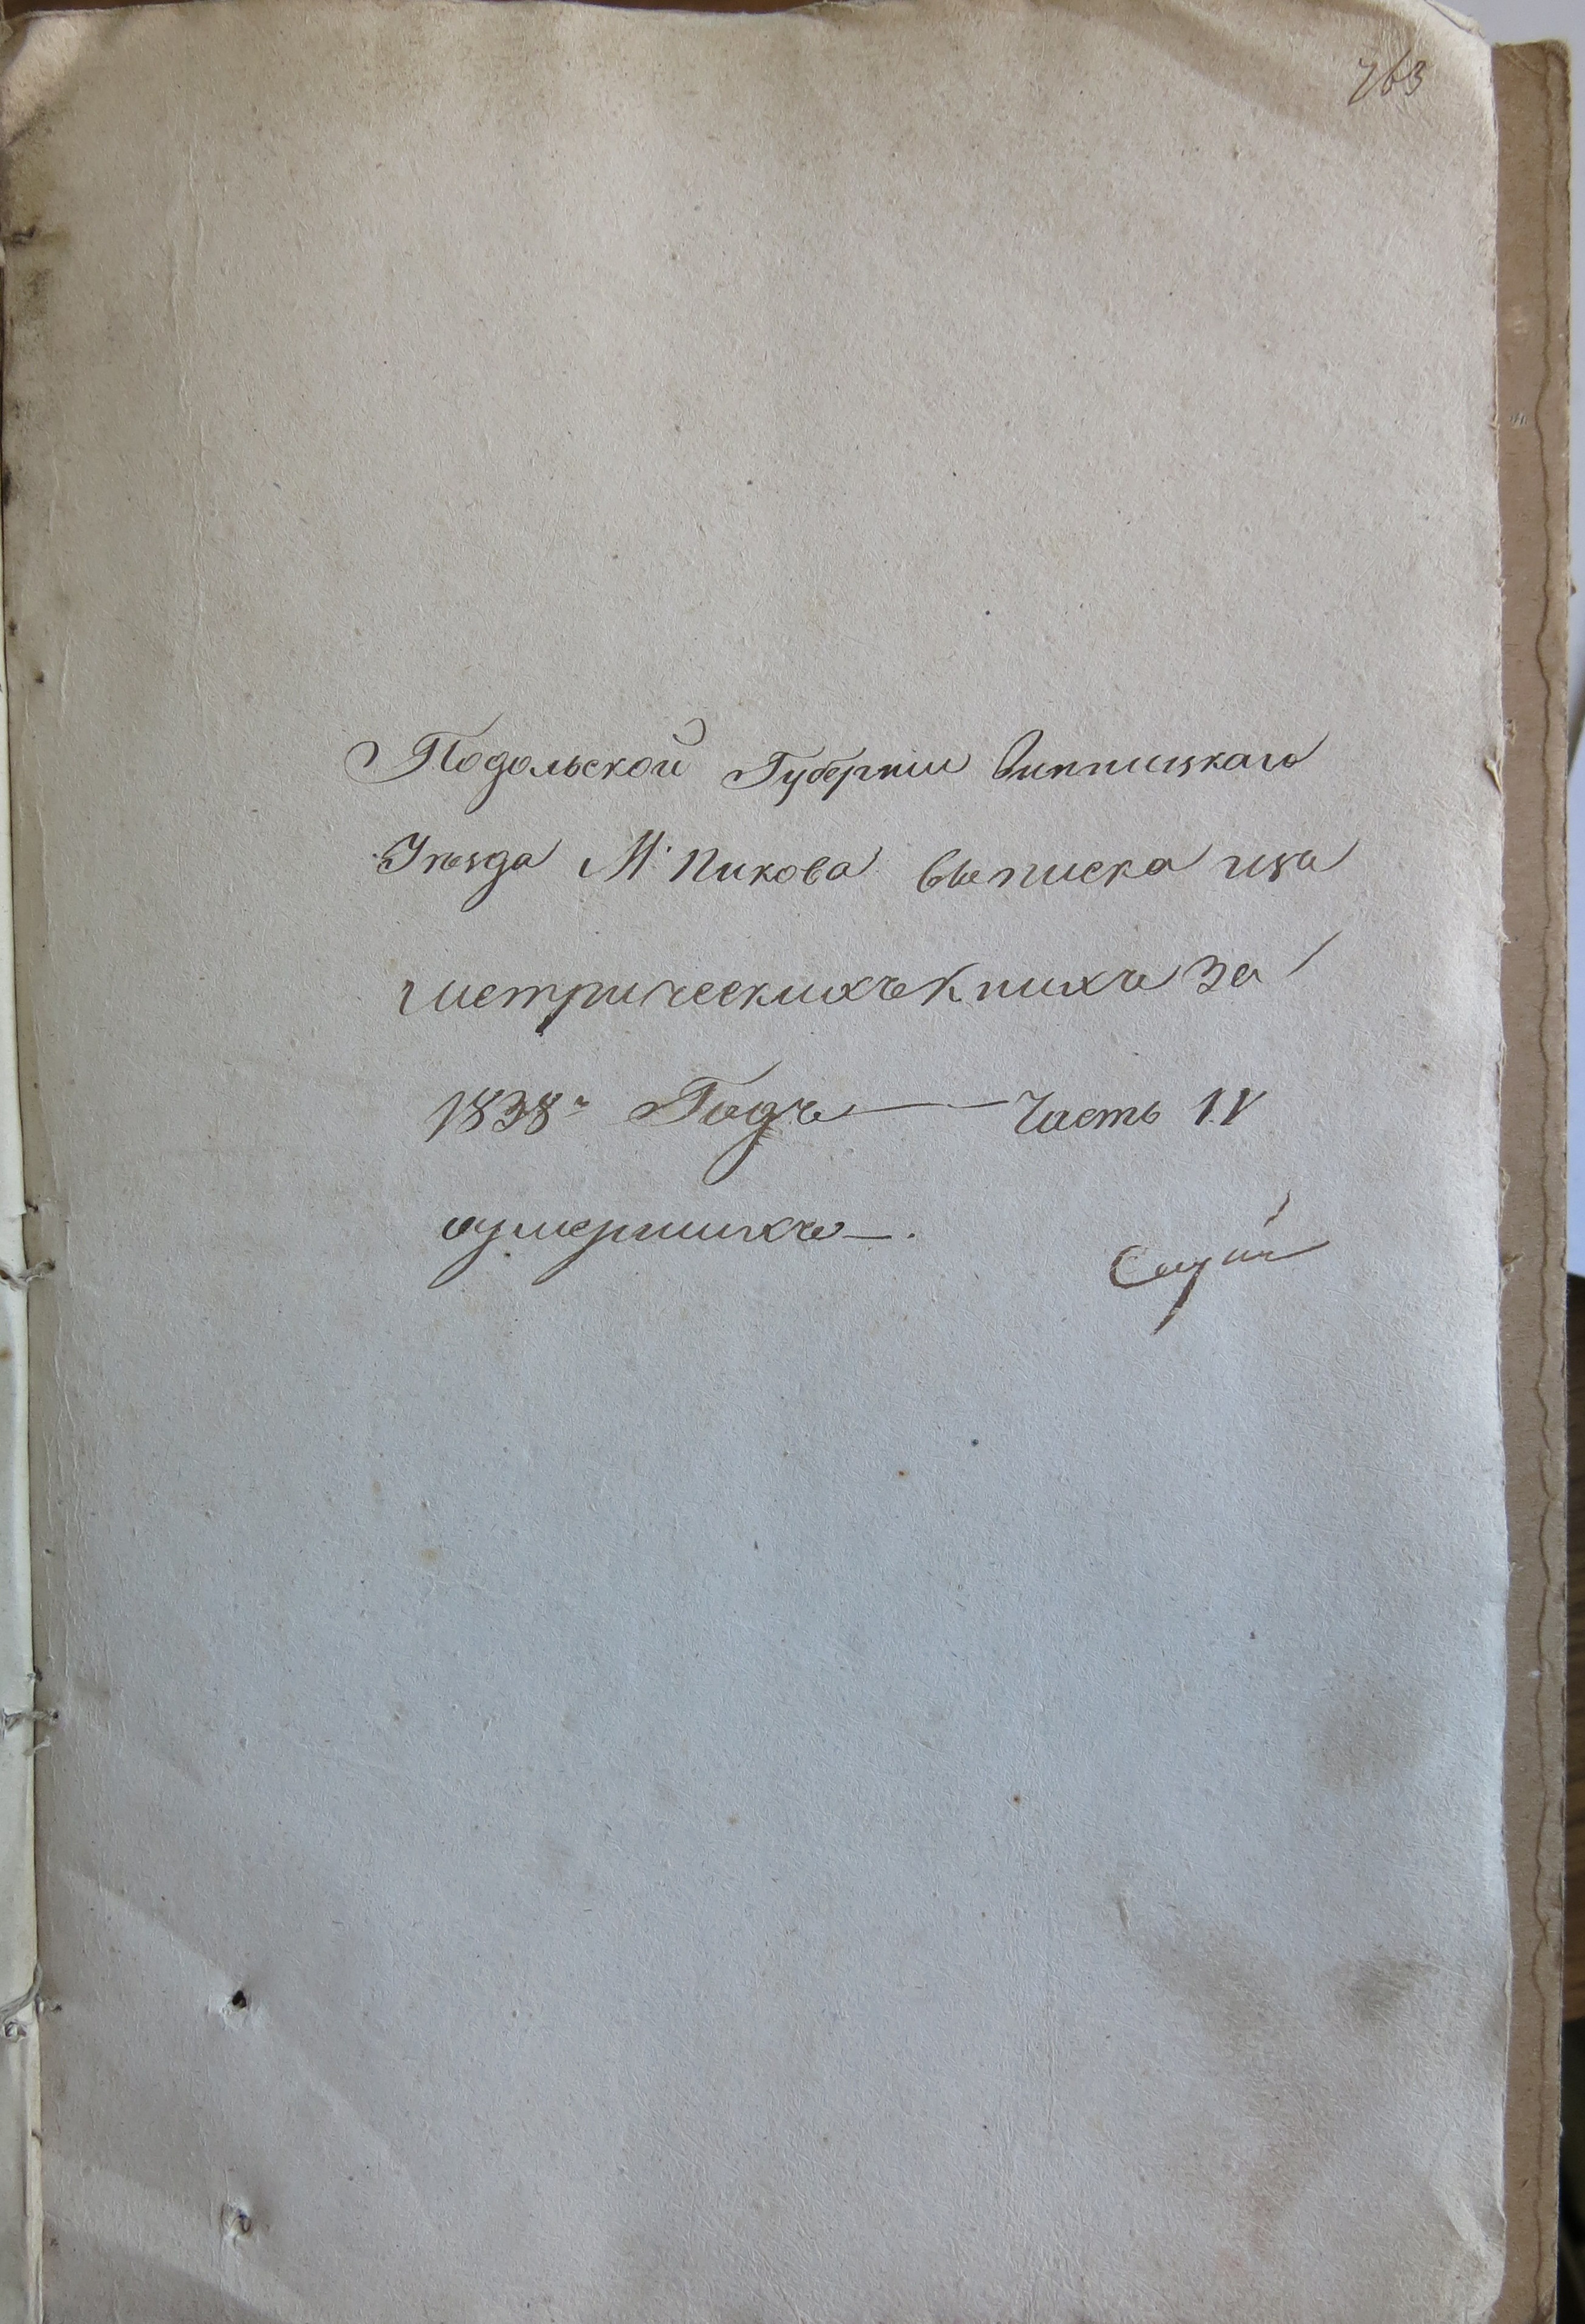 763
Подольской Губерніи Винницкаго
Уѣзда М. Пикова выписка изъ
метрическихъ Книхъ за
1838й Годъ — Часть IV
оумершихъ —.